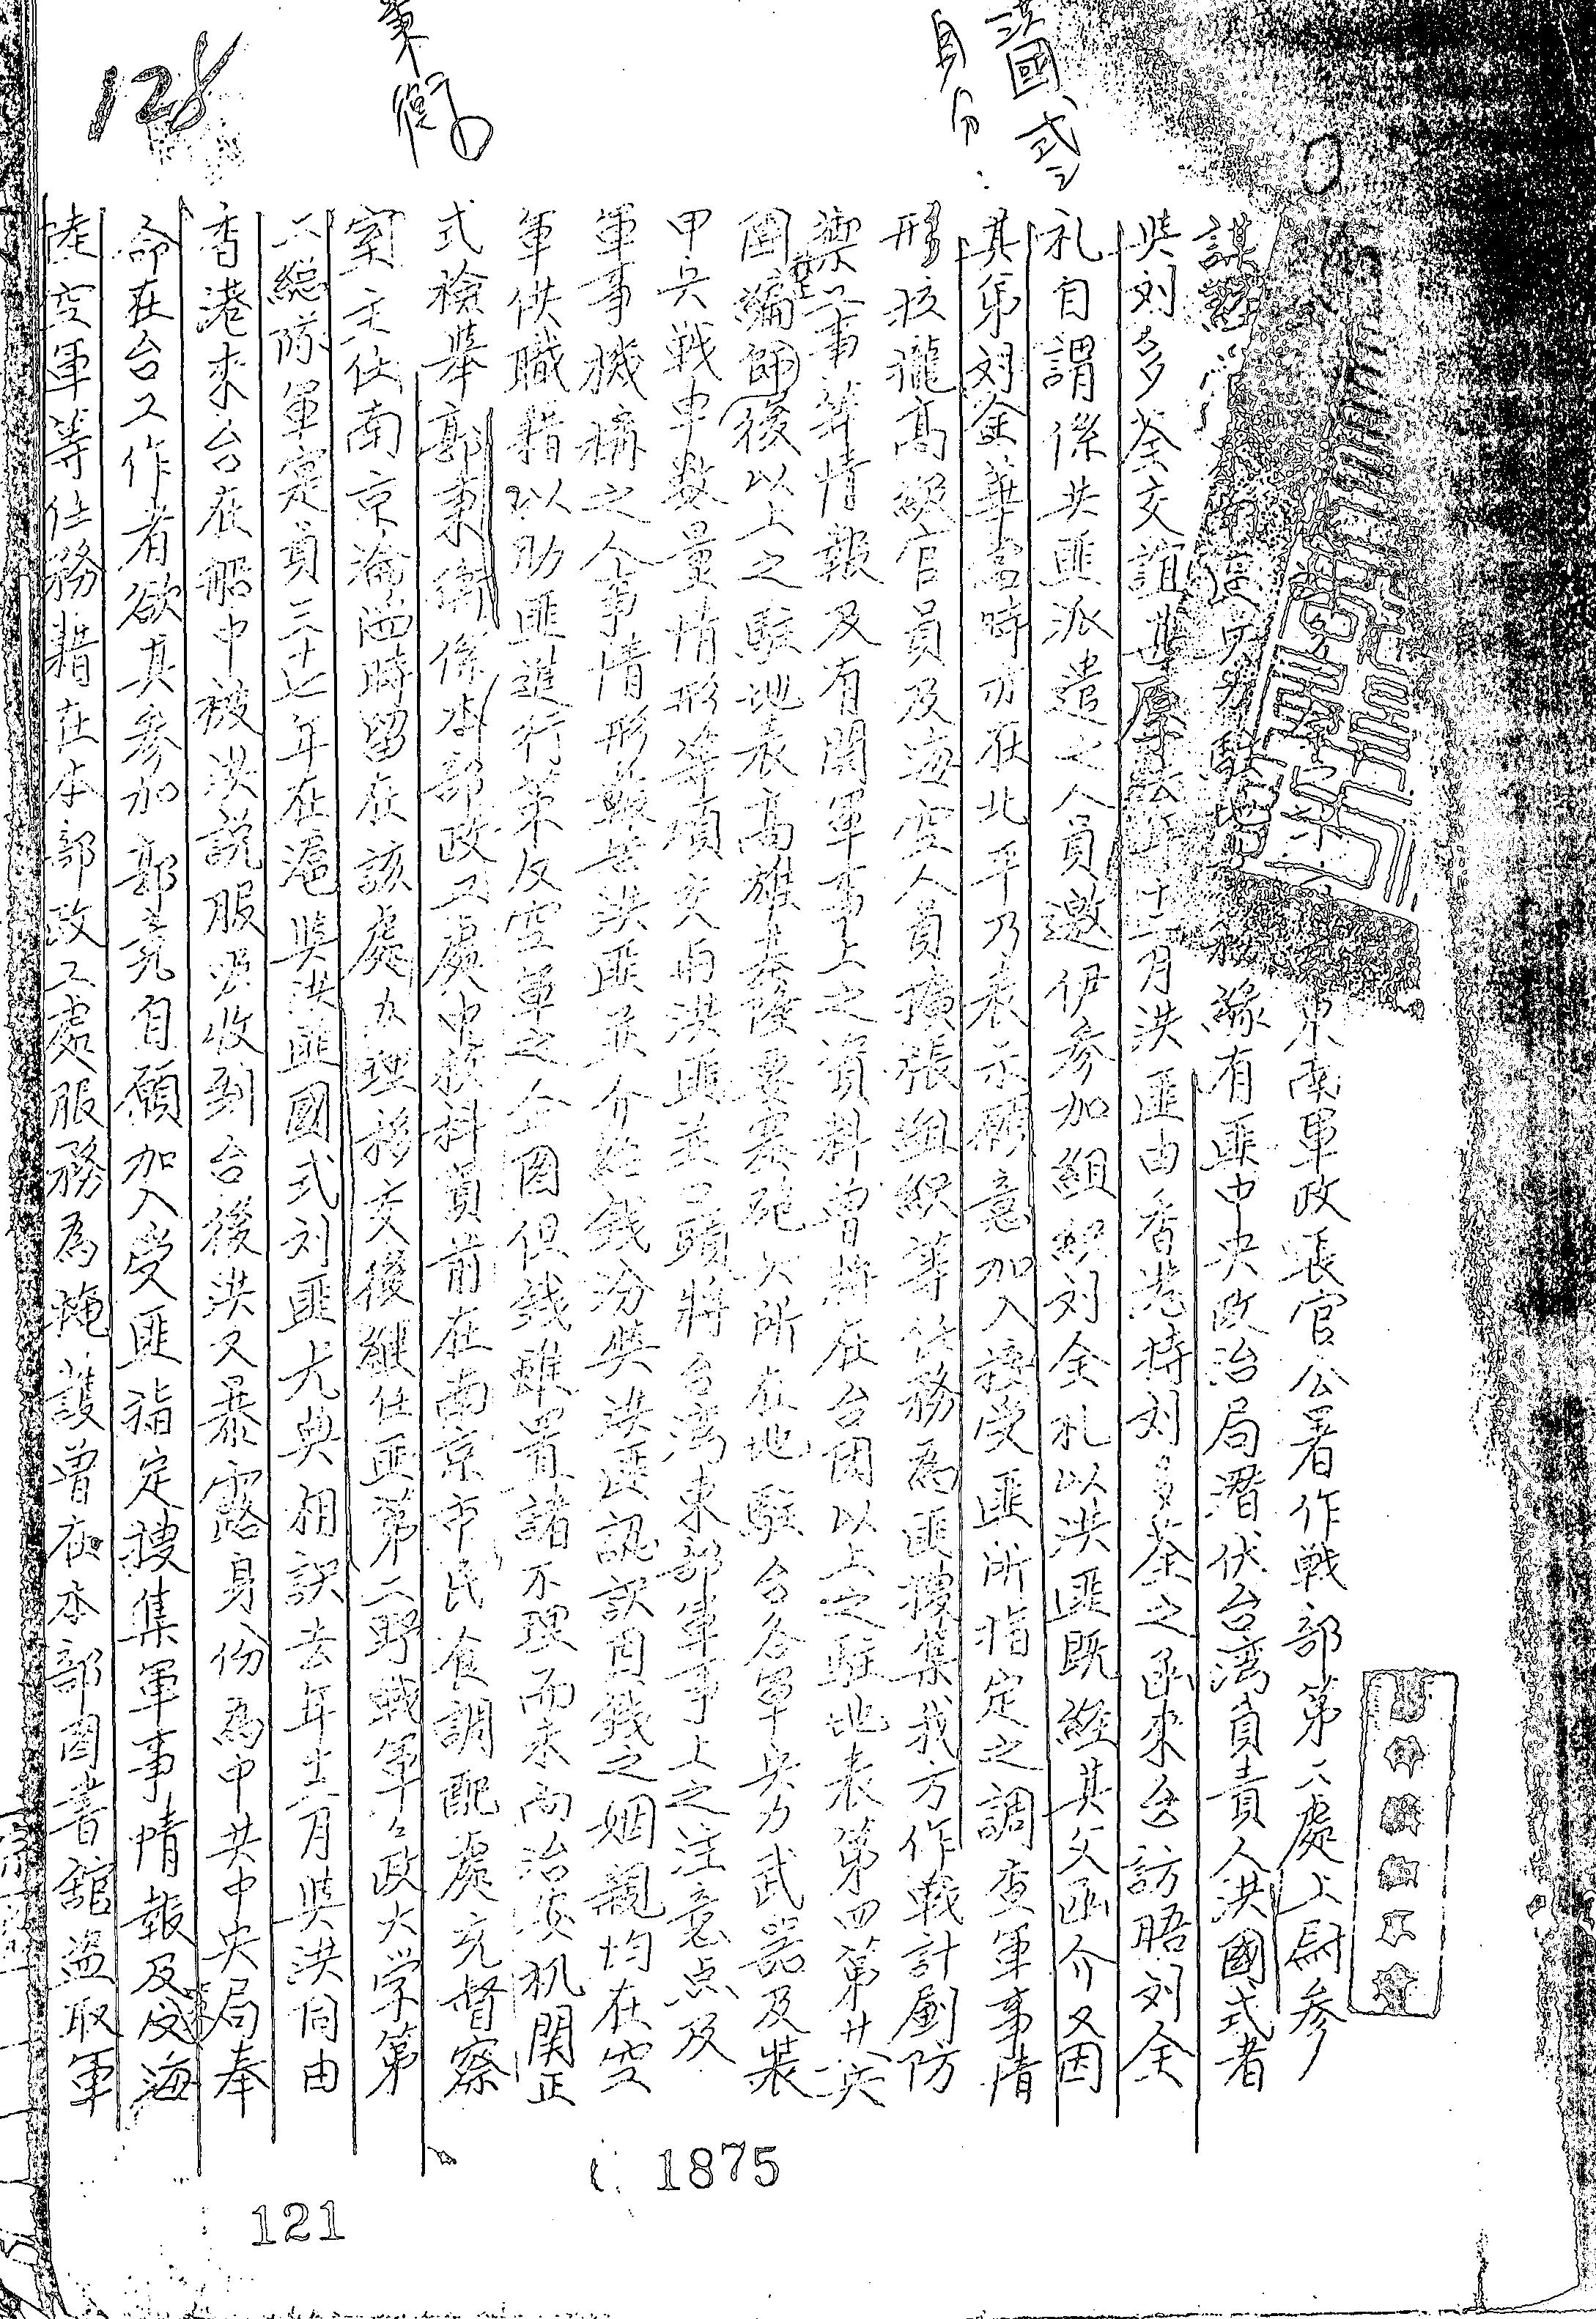 洪國式之
身分.
秉衡
128
東南軍政長官公署作戰部第六處上尉參
謀
緣有匪中央政治局潛伏台湾負責人洪國式者
與刘多荃交誼甚厚去年十二月洪匪由香港持刘多荃之函來台訪晤刘全
礼自謂係共匪派遣之人員邀伊參加組織刘全礼以洪匪既經其父函介又因
其弟刘金華當時亦在北平乃表示願意加入接受匪所指定之調查軍事情
形拉攏高級官員及海空人員擴張組織等任務為匪搜集我方作戰計劃防
禦工事等情報及有関軍事上之資料曾將在台団以上之駐地表第四第廿兵
團編師後以上之駐地表高雄基隆要塞砲火所在地駐台各軍兵力武器及裝
甲兵戰車数量情形等項交与洪匪並口頭將台湾東部軍事上之注意点及
軍事機構之人事情形報告洪匪並介紹錢汾與洪匪認識因錢之姻親均在空
軍供職藉以助匪進行策反空軍之企圖但錢雖置諸不理而未向治安机関正
式檢舉郭秉衡係本部政工處中校科員前在南京市民食調配處充督察
室主任南京淪陷時留在該處办理移交後繼任匪第二野戰軍軍政大学第
六総隊軍官員三十七年在滬與洪匪國式刘匪尤典相識去年十二月與洪同由
香港來台在船中被洪說服吸收到台後洪又暴露身份為中共中央局奉
命在台工作者欲其參加郭竟自願加入受匪指定搜集軍事情報及策反海
陸空軍等任務藉在本部政工處服務為掩護曾在本部図書館盜取軍
1875
121